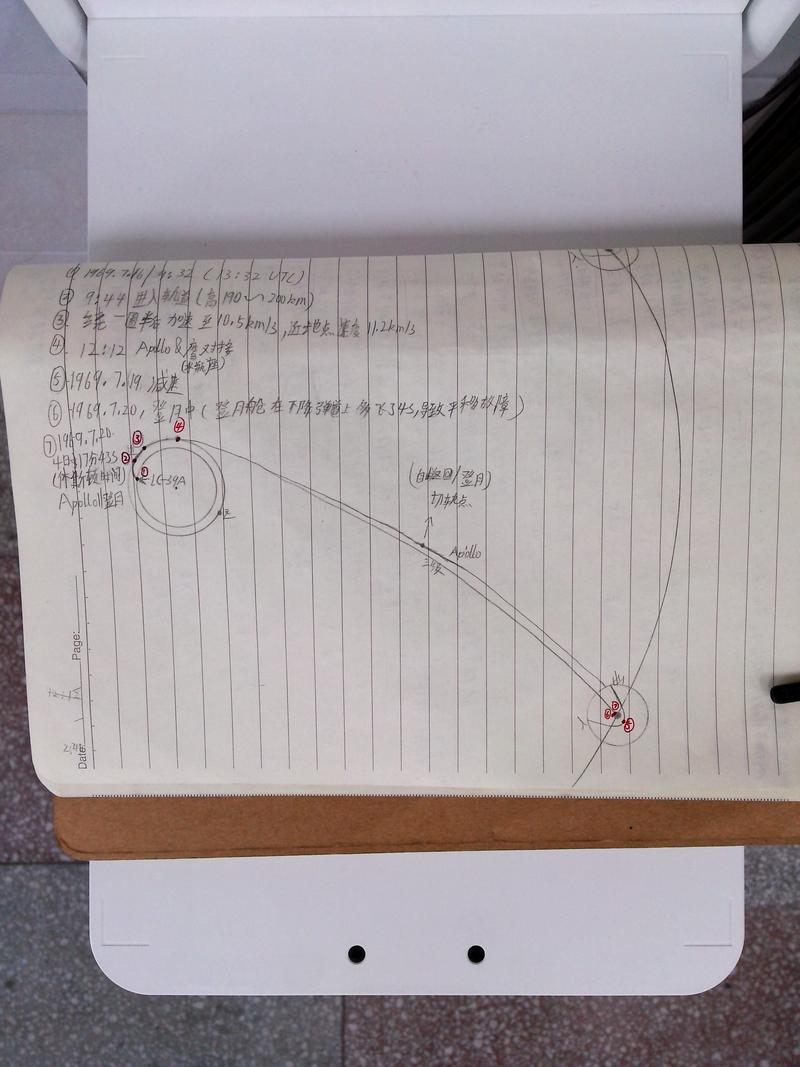 ① 1969.7.16/9:32 (13:32 UTC)
② 9:44 进入轨道(高190~200km)
③ 绕一圈半后 加速至10.5km/s,近地点速度11.2km/s
④ 12:12 Apollo & 鹰对接
⑤ 1969.7.19,减速
⑥ 1969.7.20,登月中(登月舱在下降弹道上多飞了4s,导致平移故障)
⑦ 1969.7.20.
4时17分43S
(休斯顿时间)
Apollo11登月
③
④
②
①
LC-39A
(自由返回/登月)
切轨点
Apollo
三级
⑥
⑦
⑤
Page:
Date: